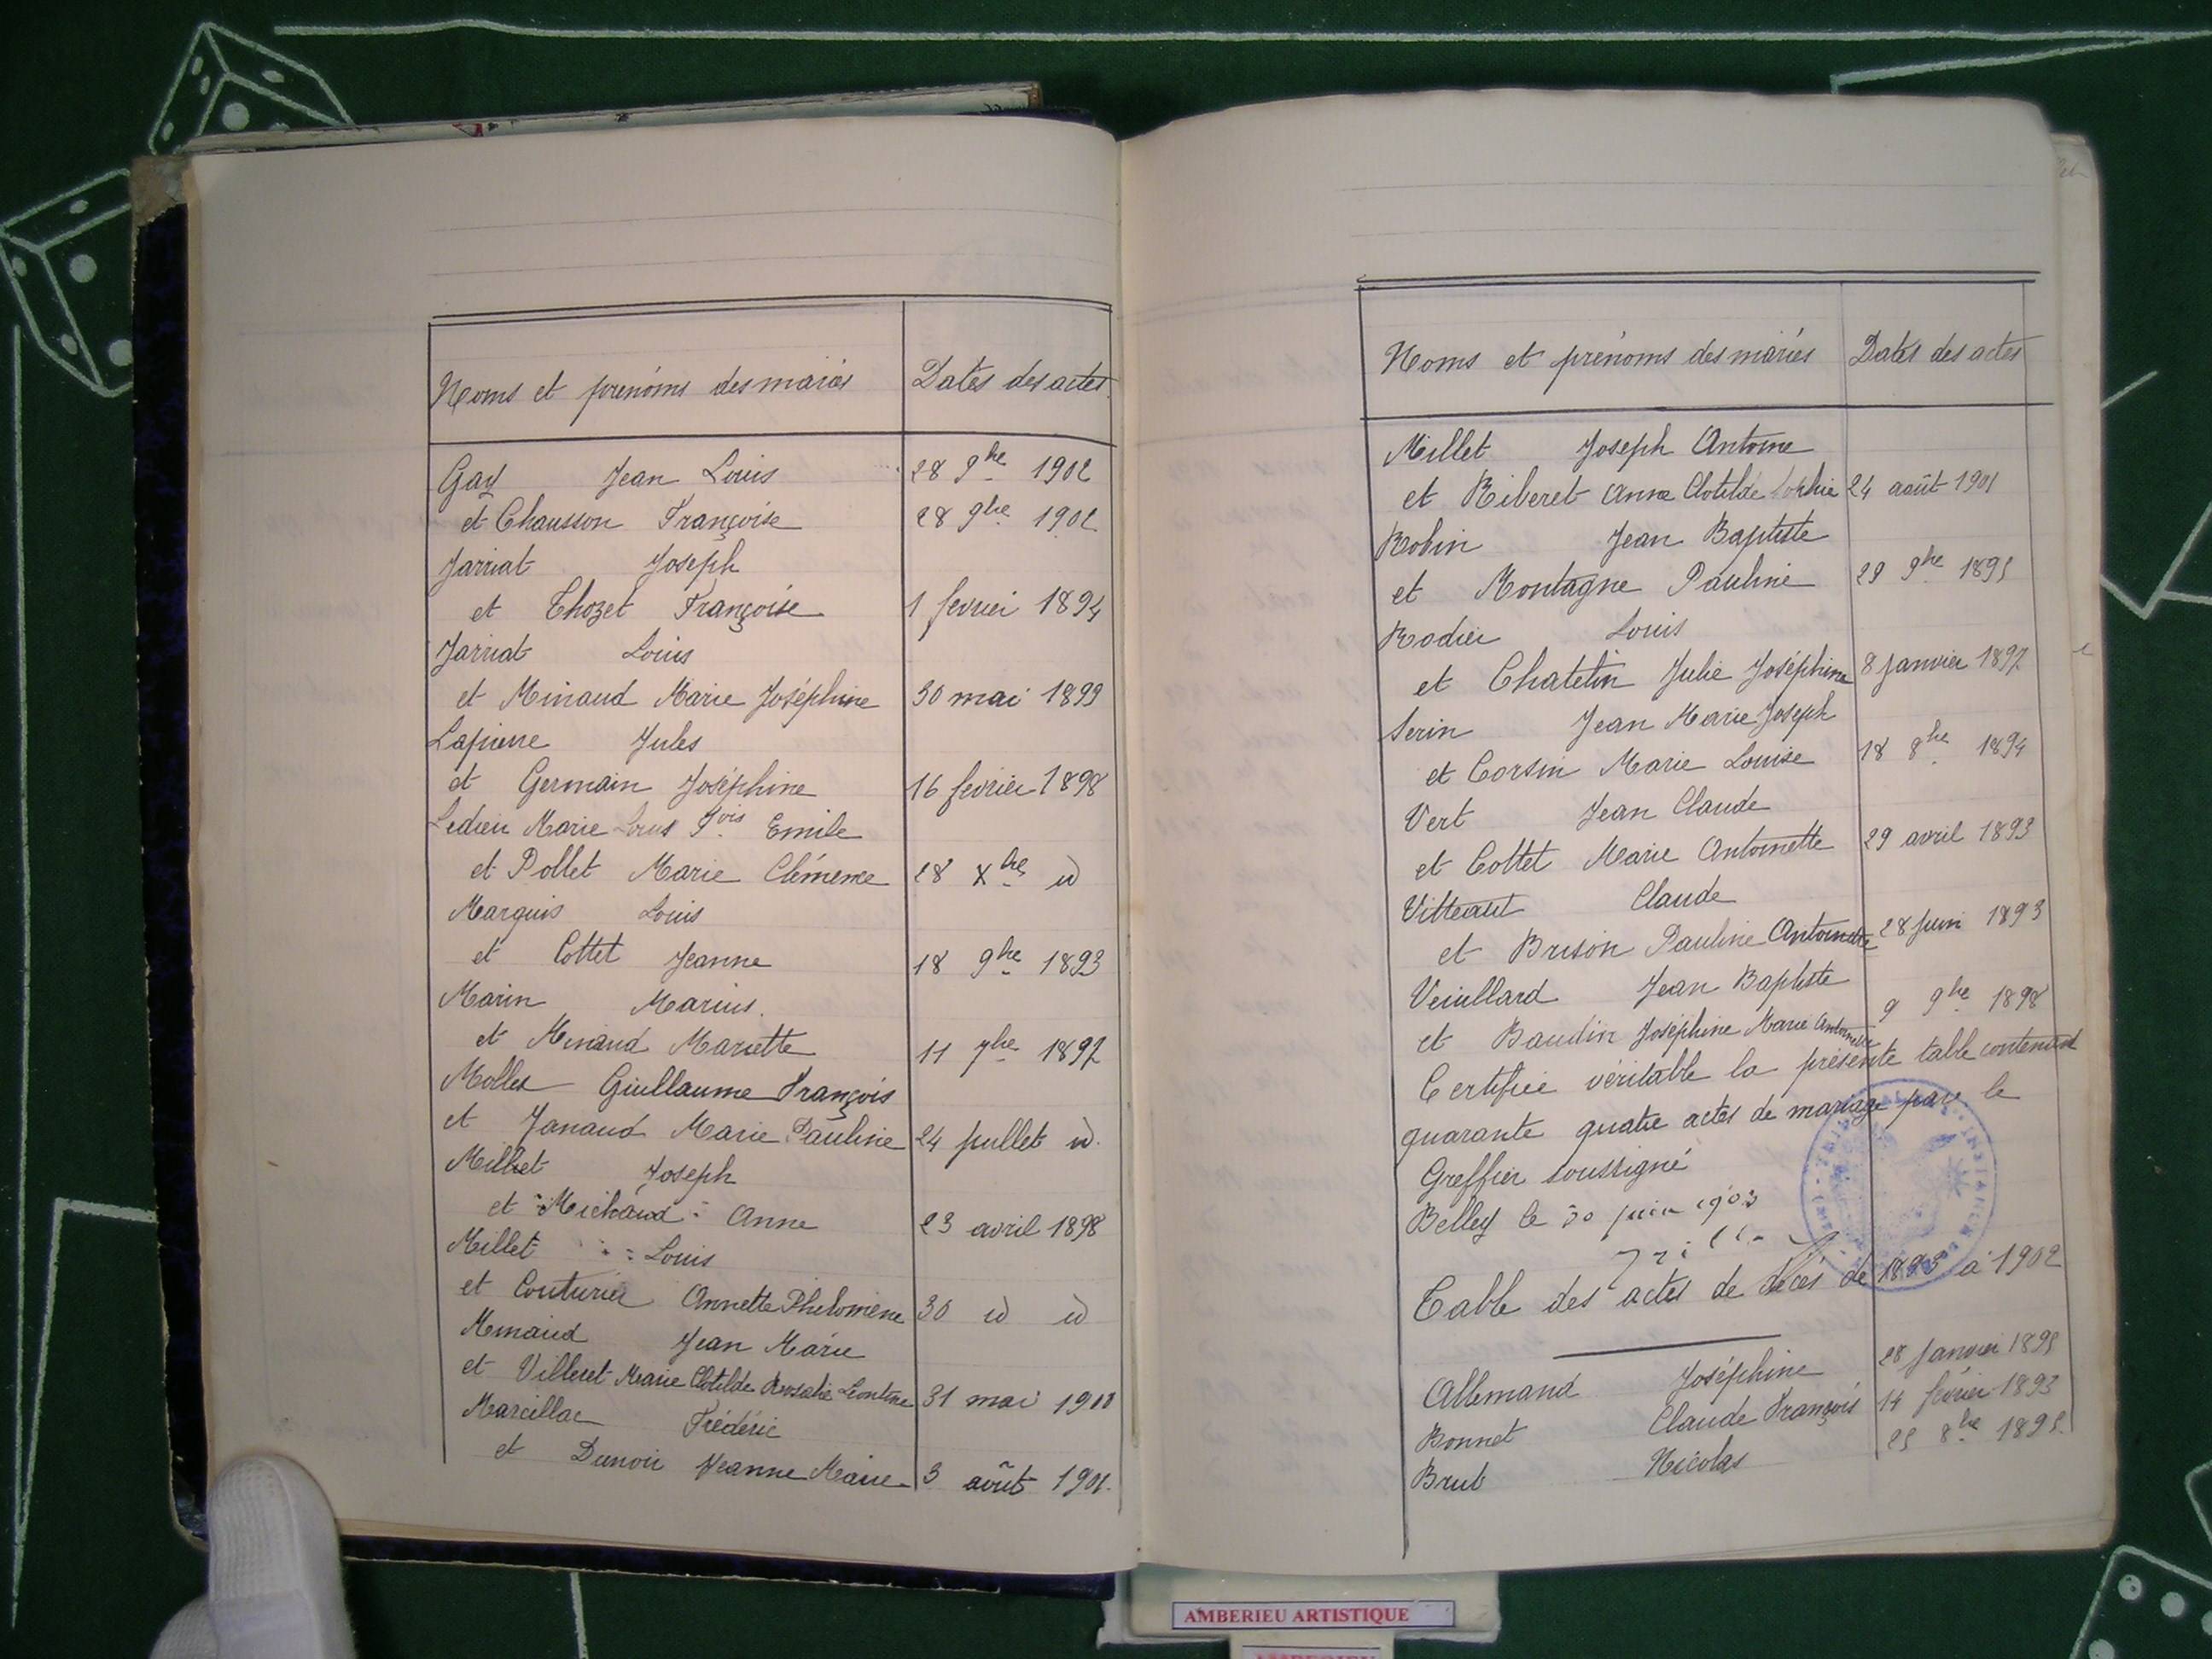 Noms et prénoms des mariés Dates des actes
Gay Jean Louis 28 9bre 1902
et Chausson Françoise 28 9bre 1902
Jarriat Joseph
et Thozet Françoise 1 fevrier 1894
Jarriat Louis
et Minaud Marie Joséphine 30 mai 1899
Lapierre Jules
et Germain Joséphine 16 février 1898
Ledieu Marie Louis Fois Emile
et Pollet Marie Clémence 28 Xbre id
Marquis Louis
et Cottet Jeanne 18 9bre 1893
Marin Marius.
et Minaud Mariette 11 7bre 1897
Mollex Guillaume François
et Janaud Marie Pauline 24 juillet id.
Millet Joseph
et Michaud Anne 23 avril 1898
Millet Louis
et Couturier Annette Philomène 30 id id
Minaud Jean Marie
et Villeret Marie Clotilde Rosalie Léontine 31 mai 1900
Marcillac Frédéric
et Dunoir Jeanne Marie 3 août 1901.
Noms et prénoms des mariés Dates des actes
Millet Joseph Antoine
et Riberet Anna Clotilde Sophie 24 août 1901
Robin Jean Baptiste
et Montagne Pauline 29 9bre 1895
Rodier Louis
et Chatelin Julie Joséphine 8 Janvier 1897
Serin Jean Marie Joseph
et Corsin Marie Louise 18 8bre 1894
Vert Jean Claude
et Cottet Marie Antoinette 29 avril 1893
Vitteaut Claude
et Brison Pauline Antoinette 28 Juin 1893
Veuillard Jean Baptiste
et Baudin Joséphine Marie Antoinette 9 9bre 1898
Certifiée véritable la présente table contenant
quarante quatre actes de mariage par le
Greffier soussigné
Belley le 30 juin 1903
Table des actes de décès de 1893 à 1902
Allemand Joséphine 28 Janvier 1895
Bonnet Claude François 14 février 1893
Brut Nicolas 25 8bre 1895.
AMBERIEU ARTISTIQUE